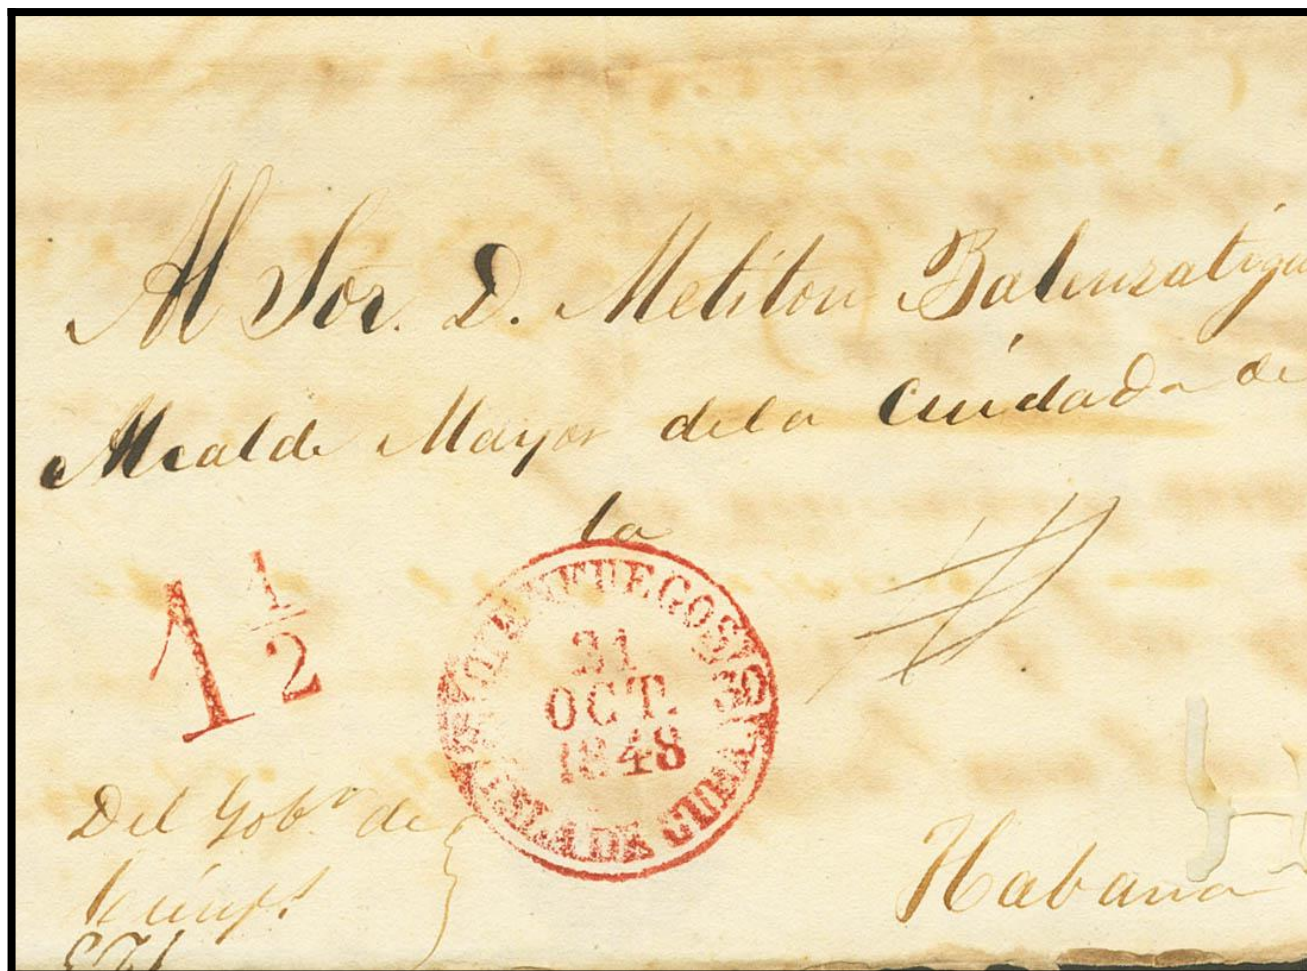 Al Sor. D. Meliton Balenzategui
Alcalde Mayor de la Ciudad de
la
1 1/2
CIENFUEGOS
30
31
OCT.
1848
ISLA DE CUBA
Del Gobr. de
Habana